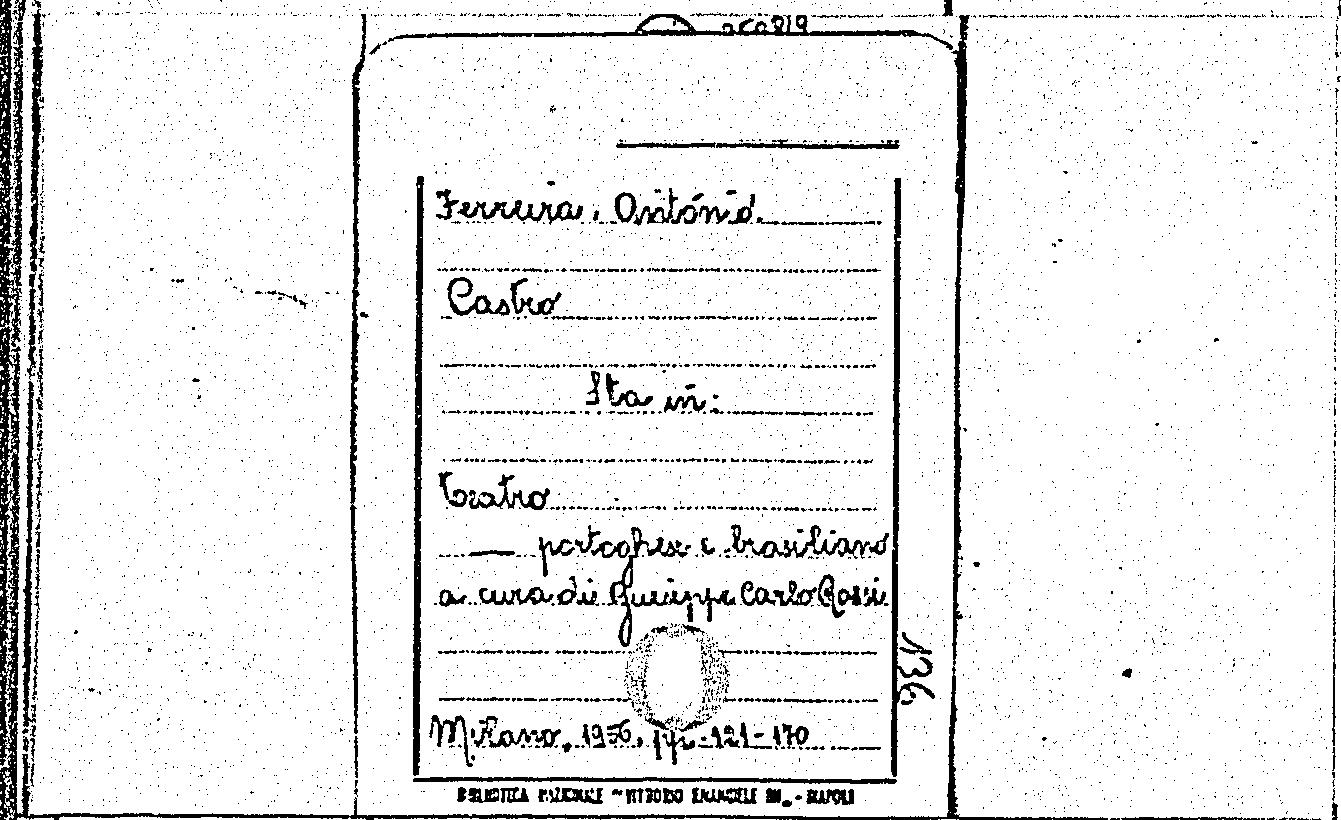 Ferreira, António.
Castro
Sta in:
Teatro
— portoghese e brasiliano
a cura di Giuseppe Carlo Rossi
136
Milano, 1956, pp. 121-170
BIBLIOTECA NAZIONALE - VITTORIO EMANUELE III. - NAPOLI